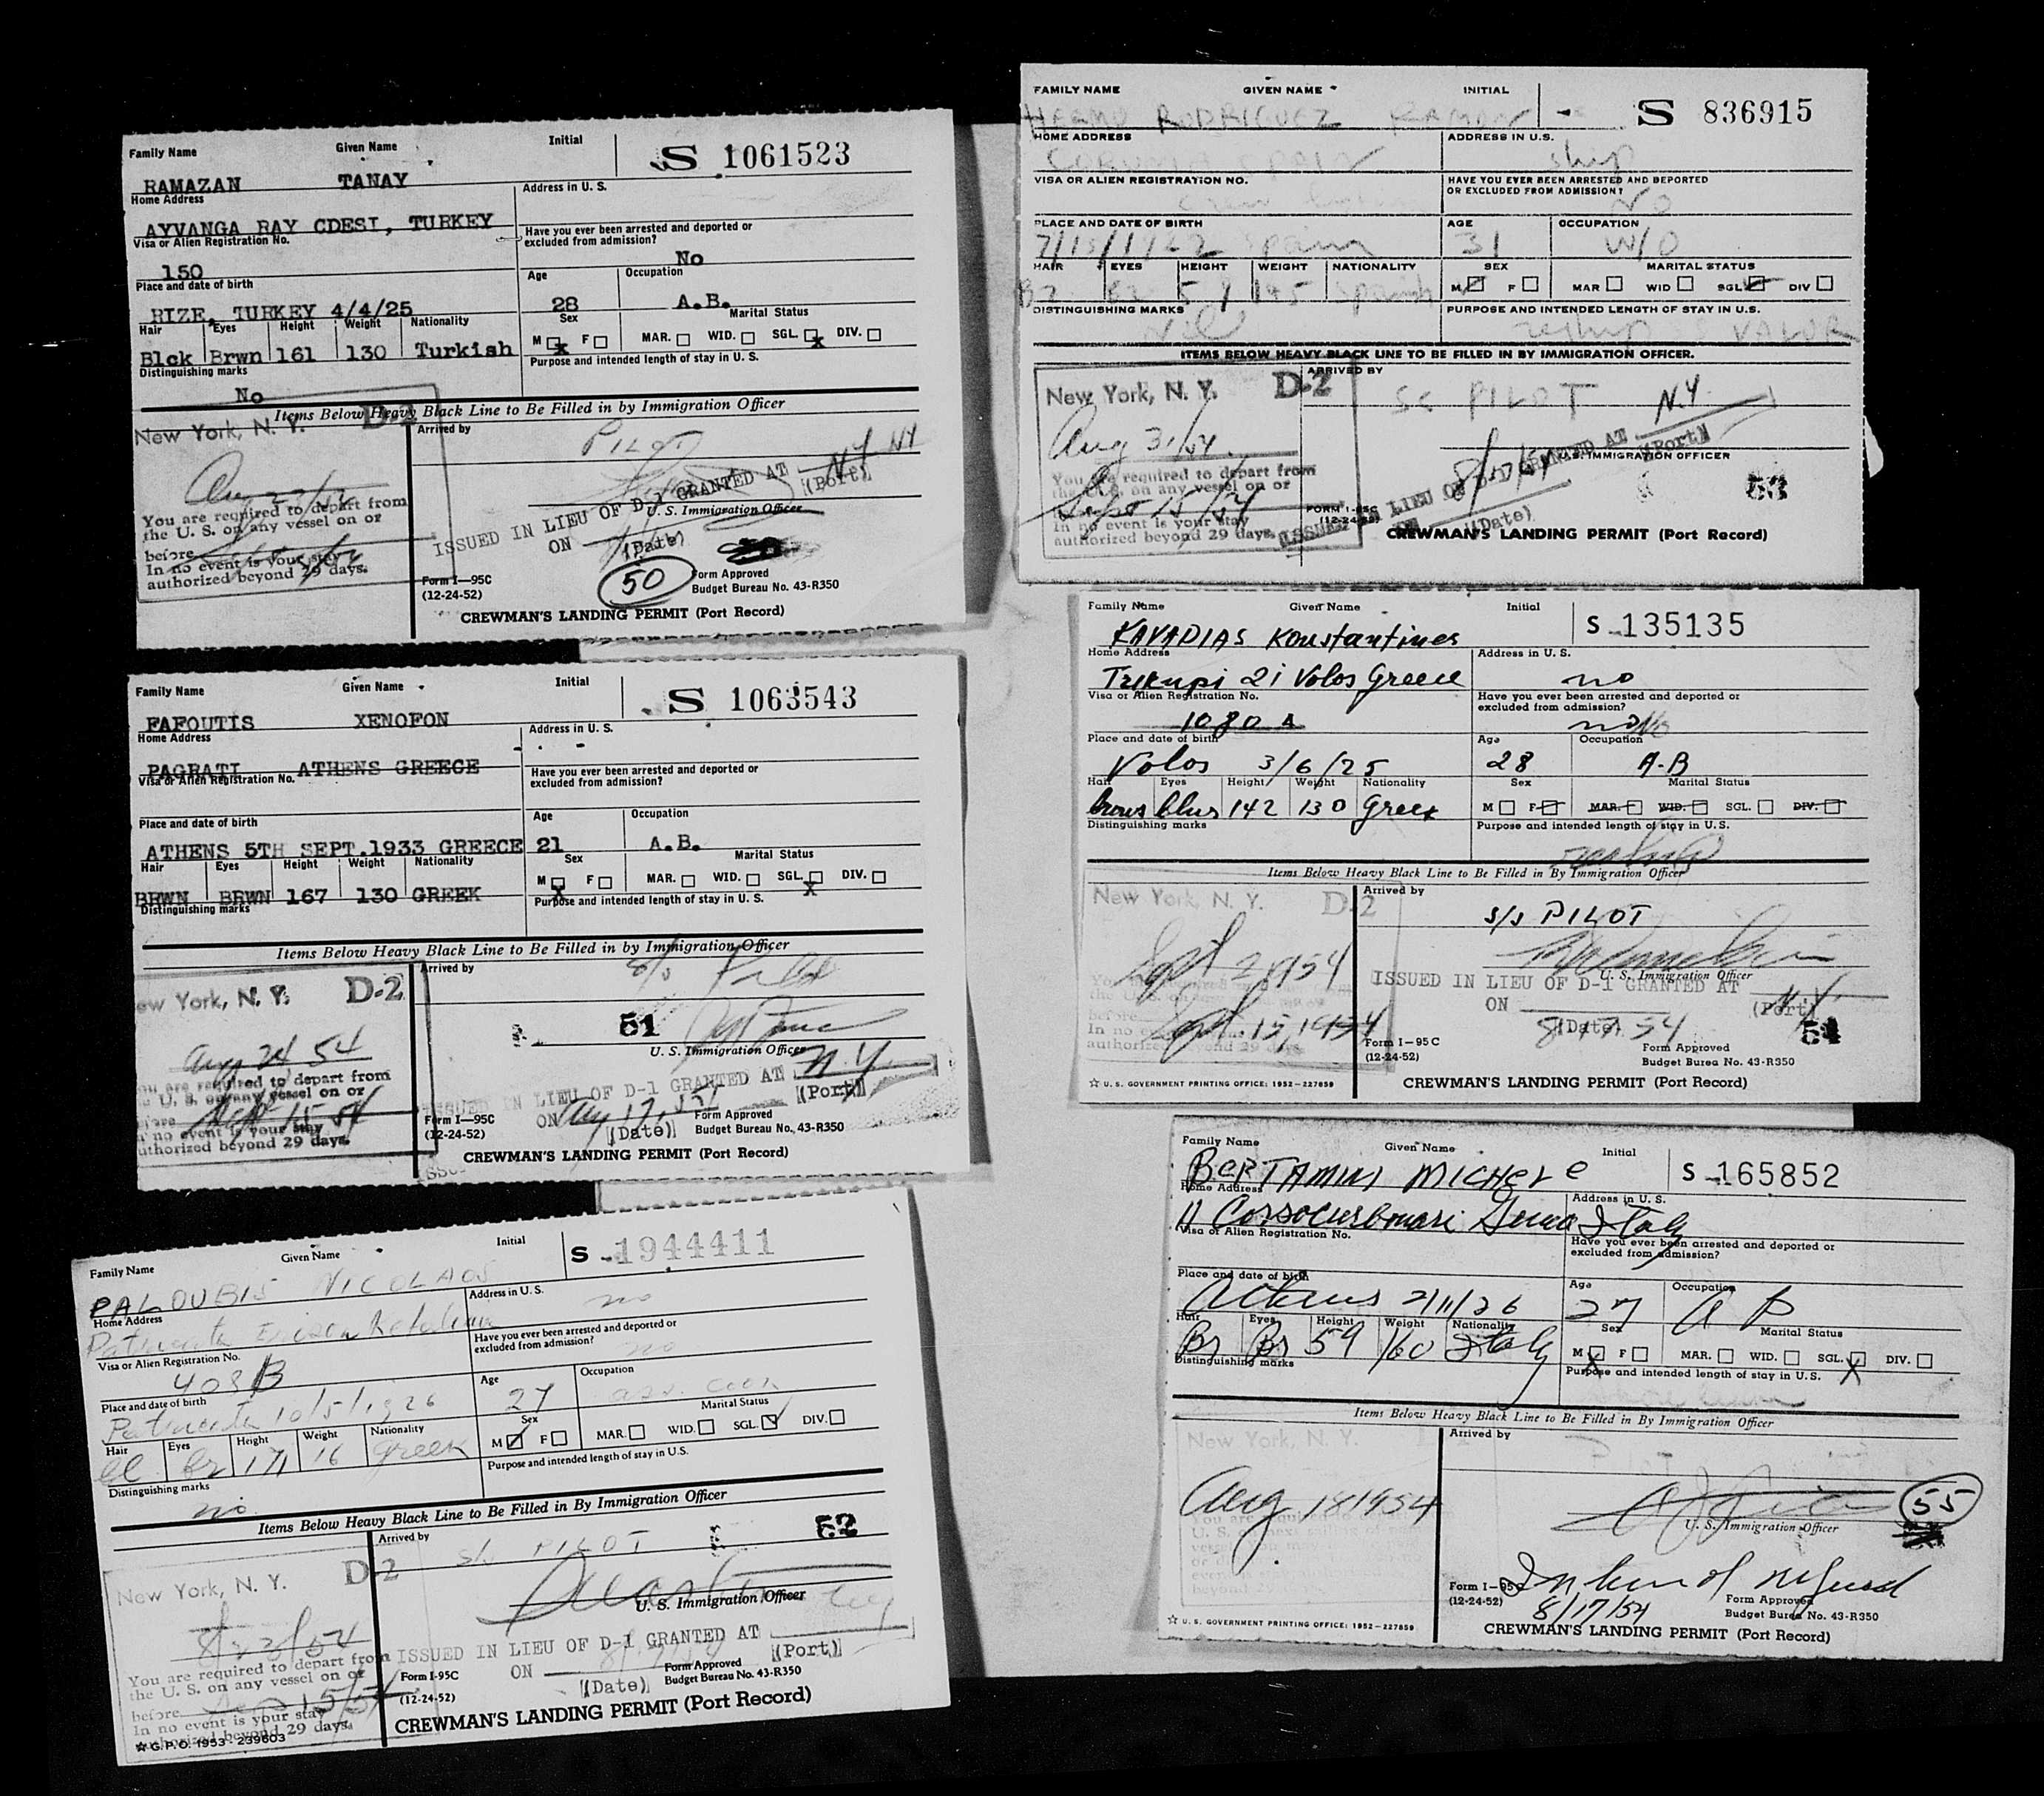 Family Name Given Name Initial S 1061523
RAMAZAN TANAY
Home Address Address in U. S.
AYVANGA RAY CDESI, TURKEY
Visa or Alien Registration No. Have you ever been arrested and deported or excluded from admission?
150 No
Place and date of birth Age Occupation
RIZE, TURKEY 4/4/25 28 A.B.
Hair Eyes Height Weight Nationality Sex Marital Status
Blck Brwn 161 130 Turkish M X F MAR. WID. SGL. X DIV.
Distinguishing marks Purpose and intended length of stay in U. S.
No
Items Below Heavy Black Line to Be Filled in by Immigration Officer
New York, N. Y. D-2 Arrived by
PILOT
You are required to depart from
the U. S. on any vessel on or
before
In no event is your stay
authorized beyond 29 days.
ISSUED IN LIEU OF D-1 GRANTED AT NY (Port)
U. S. Immigration Officer
ON (Date)
50
Form I-95C
(12-24-52)
Form Approved
Budget Bureau No. 43-R350
CREWMAN'S LANDING PERMIT (Port Record)
Family Name Given Name Initial S 1063543
FAFOUTIS XENOFON
Home Address Address in U. S.
PAGRATI ATHENS GREECE
Visa or Alien Registration No. Have you ever been arrested and deported or excluded from admission?
Place and date of birth Age Occupation
ATHENS 5TH SEPT.1933 GREECE 21 A.B.
Hair Eyes Height Weight Nationality Sex Marital Status
BRWN BRWN 167 130 GREEK M X F MAR. WID. SGL. X DIV.
Distinguishing marks Purpose and intended length of stay in U. S.
Items Below Heavy Black Line to Be Filled in by Immigration Officer
ew York, N. Y. D-2 Arrived by
S/S Pilot
Aug 24 54
51
U. S. Immigration Officer
depart from
U. S. on any vessel on or
Sept 15 54
no event is your stay
uthorized beyond 29 days.
ISSUED IN LIEU OF D-1 GRANTED AT N.Y. (Port)
ON Aug 17, 54 (Date)
Form I-95C
(12-24-52)
Form Approved
Budget Bureau No. 43-R350
CREWMAN'S LANDING PERMIT (Port Record)
Family Name Given Name Initial S 1944411
PALOUBIS NICOLAOS
Home Address Address in U. S.
no
Visa or Alien Registration No. Have you ever been arrested and deported or excluded from admission?
403 B no
Place and date of birth Age Occupation
10/5/1926 27 ass. cook
Hair Eyes Height Weight Nationality Sex Marital Status
br 171 16 greek M F MAR. WID. SGL. DIV.
Distinguishing marks Purpose and intended length of stay in U.S.
no
Items Below Heavy Black Line to Be Filled in By Immigration Officer
Arrived by
S/S PILOT 52
New York, N. Y. D-2
8/23/54
U. S. Immigration Officer
You are required to depart from
the U. S. on any vessel on or
before 15/54
In no event is your stay
authorized beyond 29 days.
ISSUED IN LIEU OF D-1 GRANTED AT (Port)
ON (Date)
Form I-95C
(12-24-52)
Form Approved
Budget Bureau No. 43-R350
☆ G.P.O. 1953 - 239603
CREWMAN'S LANDING PERMIT (Port Record)
FAMILY NAME GIVEN NAME INITIAL S 836915
HERMO RODRIGUEZ RAMON
HOME ADDRESS ADDRESS IN U.S.
CORUNA SPAIN Ship
VISA OR ALIEN REGISTRATION NO. HAVE YOU EVER BEEN ARRESTED AND DEPORTED OR EXCLUDED FROM ADMISSION?
No
PLACE AND DATE OF BIRTH AGE OCCUPATION
7/15/1922 Spain 31 W/O
HAIR EYES HEIGHT WEIGHT NATIONALITY SEX MARITAL STATUS
Bz 145 Spanish M F MAR WID SGL DIV
DISTINGUISHING MARKS PURPOSE AND INTENDED LENGTH OF STAY IN U.S.
Nil reship
ITEMS BELOW HEAVY BLACK LINE TO BE FILLED IN BY IMMIGRATION OFFICER.
New York, N. Y. D-2 ARRIVED BY
SS PILOT
Aug 31/54
You are required to depart from
the U.S. on any vessel on or
Sept 15/54
In no event is your stay
authorized beyond 29 days.
ISSUED IN LIEU OF D-1 GRANTED AT N.Y. (Port)
8/17/54 (Date)
U.S. IMMIGRATION OFFICER
53
FORM I-95C
(12-24-52)
CREWMAN'S LANDING PERMIT (Port Record)
Family Name Given Name Initial S 135135
KAVADIAS Konstantinos
Home Address Address in U. S.
Trikupi 21 Volos Greece no
Visa or Alien Registration No. Have you ever been arrested and deported or excluded from admission?
1080 A no No
Place and date of birth Age Occupation
Volos 3/6/25 28 A-B
Hair Eyes Height Weight Nationality Sex Marital Status
142 130 Greek M F MAR. WID. SGL. DIV.
Distinguishing marks Purpose and intended length of stay in U.S.
Items Below Heavy Black Line to Be Filled in By Immigration Officer
New York, N. Y. D-2 Arrived by
S/S PILOT
Sept 2 1954
U. S. Immigration Officer
Sept. 15, 1954
ISSUED IN LIEU OF D-1 GRANTED AT N.Y. (Port)
ON 8/17/54 (Date)
54
Form I-95C
(12-24-52)
Form Approved
Budget Burea No. 43-R350
☆ U. S. GOVERNMENT PRINTING OFFICE: 1952-227859
CREWMAN'S LANDING PERMIT (Port Record)
Family Name Given Name Initial S 165852
BERTAMINI MICHELE
Home Address Address in U. S.
11 Italy
Visa or Alien Registration No. Have you ever been arrested and deported or excluded from admission?
Place and date of birth Age Occupation
2/11/26 27 A B
Hair Eyes Height Weight Nationality Sex Marital Status
Br Br 59 160 Italy M X F MAR. WID. SGL. X DIV.
Distinguishing marks Purpose and intended length of stay in U.S.
Items Below Heavy Black Line to Be Filled in By Immigration Officer
New York, N. Y. Arrived by
Aug 18 1954
55
U. S. Immigration Officer
In lieu of refused
8/17/54
Form I-95C
(12-24-52)
Form Approved
Budget Burea No. 43-R350
☆ U. S. GOVERNMENT PRINTING OFFICE: 1952-227859
CREWMAN'S LANDING PERMIT (Port Record)